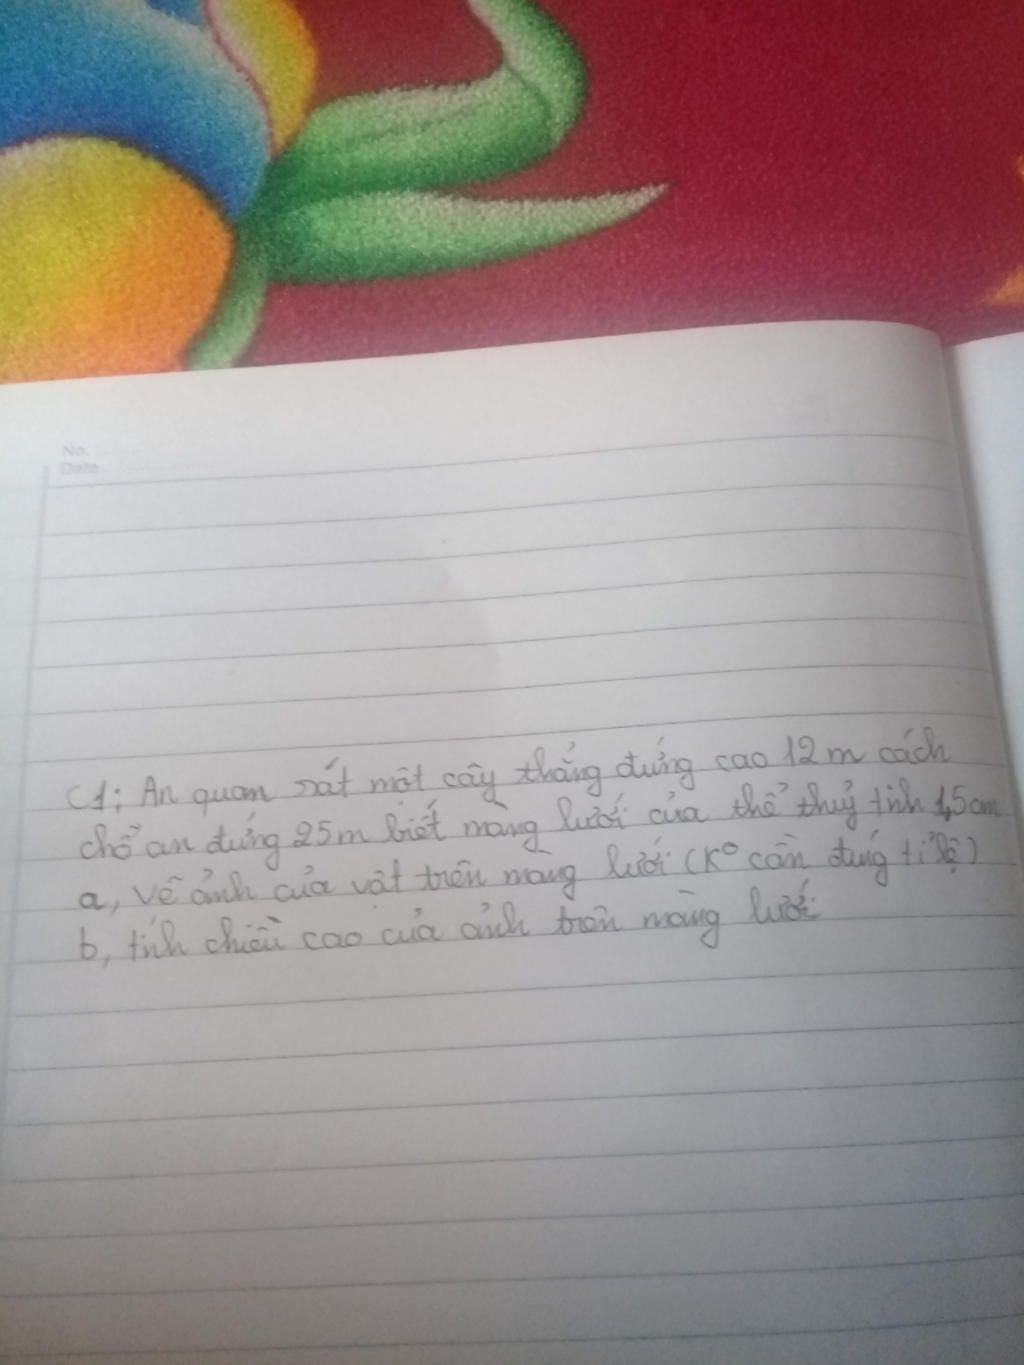 No.
Date
C1: An quan sát một cây thẳng đứng cao 12 m cách
chỗ an đứng 25m biết màng lưới của thể thuỷ tinh 1,5cm
a, Vẽ ảnh của vật trên màng lưới (K° cần đúng tỉ lệ)
b, tính chiều cao của ảnh trên màng lưới